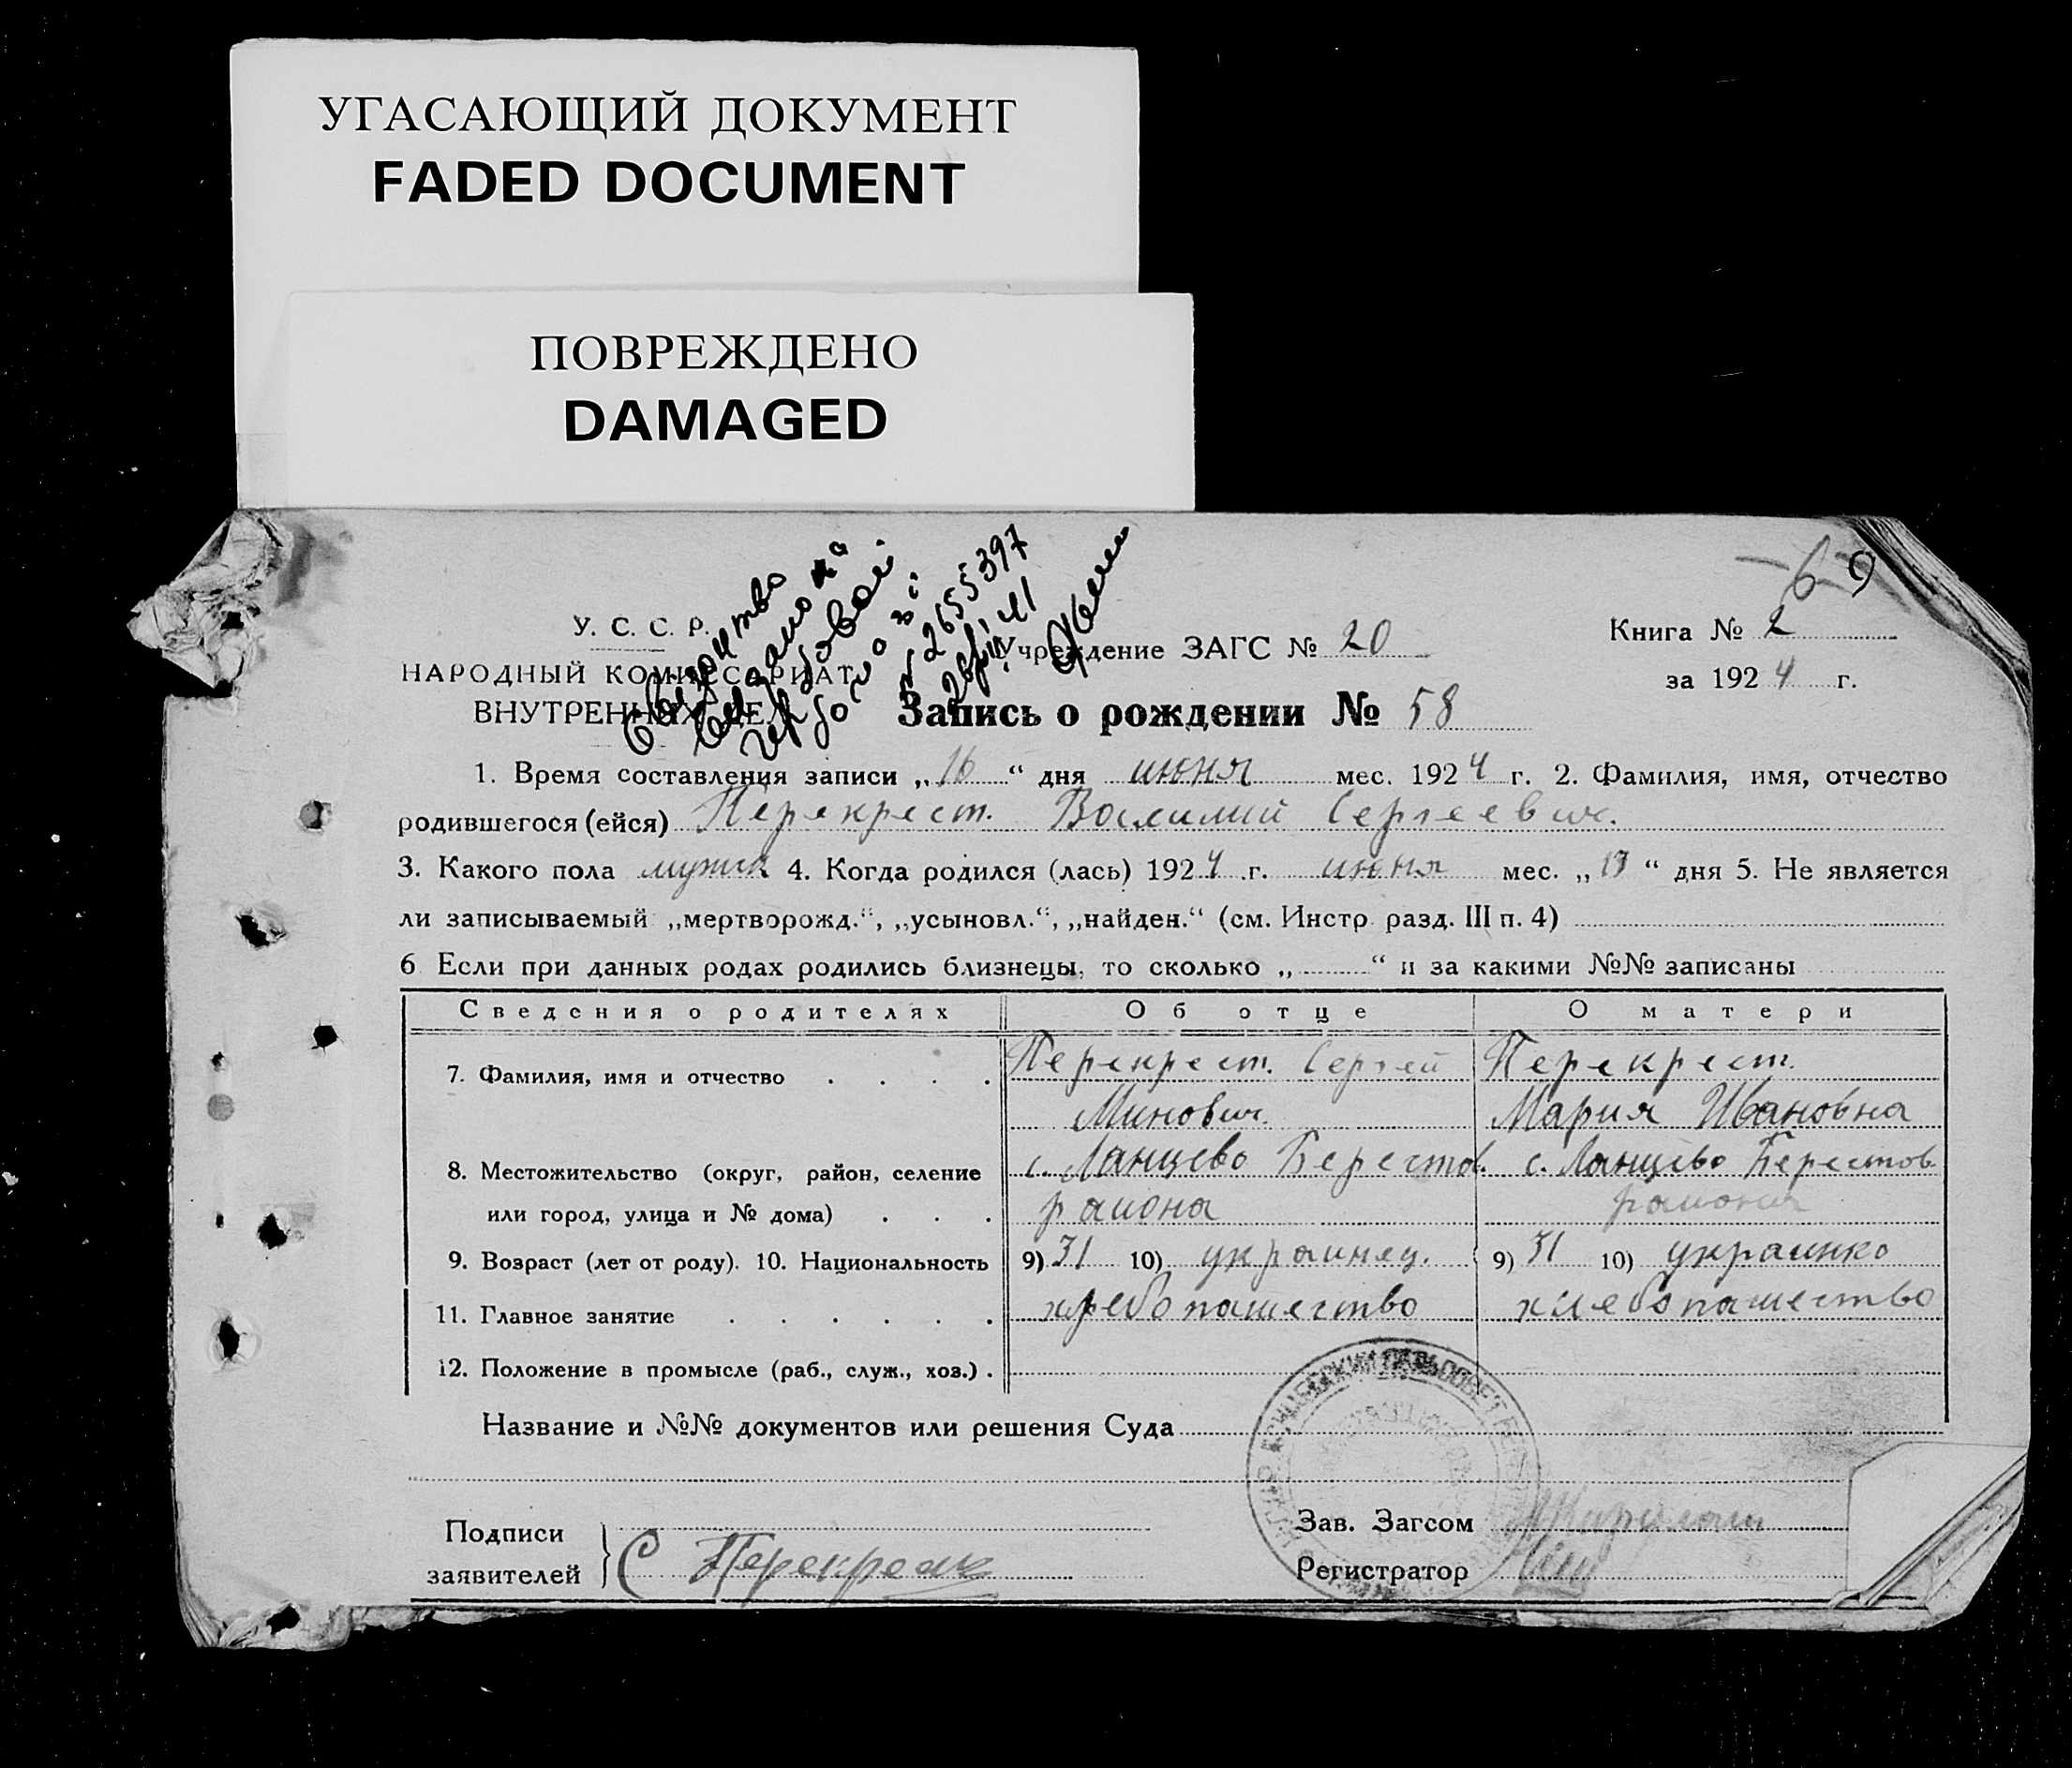 УГАСАЮЩИЙ ДОКУМЕНТ
FADED DOCUMENT
ПОВРЕЖДЕНО
DAMAGED
69
У. С. С. Р.
НАРОДНЫЙ КОМИССАРИАТ
ВНУТРЕННИХ ДЕЛ
2655397
Учреждение ЗАГС № 20
Книга № 2
за 1924 г.
Запись о рождении № 58
1. Время составления записи „16“ дня июня мес. 1924 г. 2. Фамилия, имя, отчество
родившегося (ейся) Перекрест. Василий Сергеевич.
3. Какого пола мужск 4. Когда родился (лась) 1924 г. июня мес. „13“ дня 5. Не является
ли записываемый „мертворожд.“, „усыновл.“, „найден.“ (см. Инстр. разд. III п. 4)
6 Если при данных родах родились близнецы, то сколько „ “ и за какими №№ записаны
Сведения о родителях Об отце О матери
7. Фамилия, имя и отчество Перекрест. Сергей Перекрест.
Минович. Мария Ивановна
8. Местожительство (округ, район, селение с. Ланцево Берестов. с. Ланцево Берестов.
или город, улица и № дома) района района
9. Возраст (лет от роду). 10. Национальность 9) 31 10) украинец. 9) 31 10) украинка
11. Главное занятие хлебопашество хлебопашество
12. Положение в промысле (раб., служ., хоз.)
Название и №№ документов или решения Суда
Подписи
заявителей С Перекрест
Зав. Загсом
Регистратор